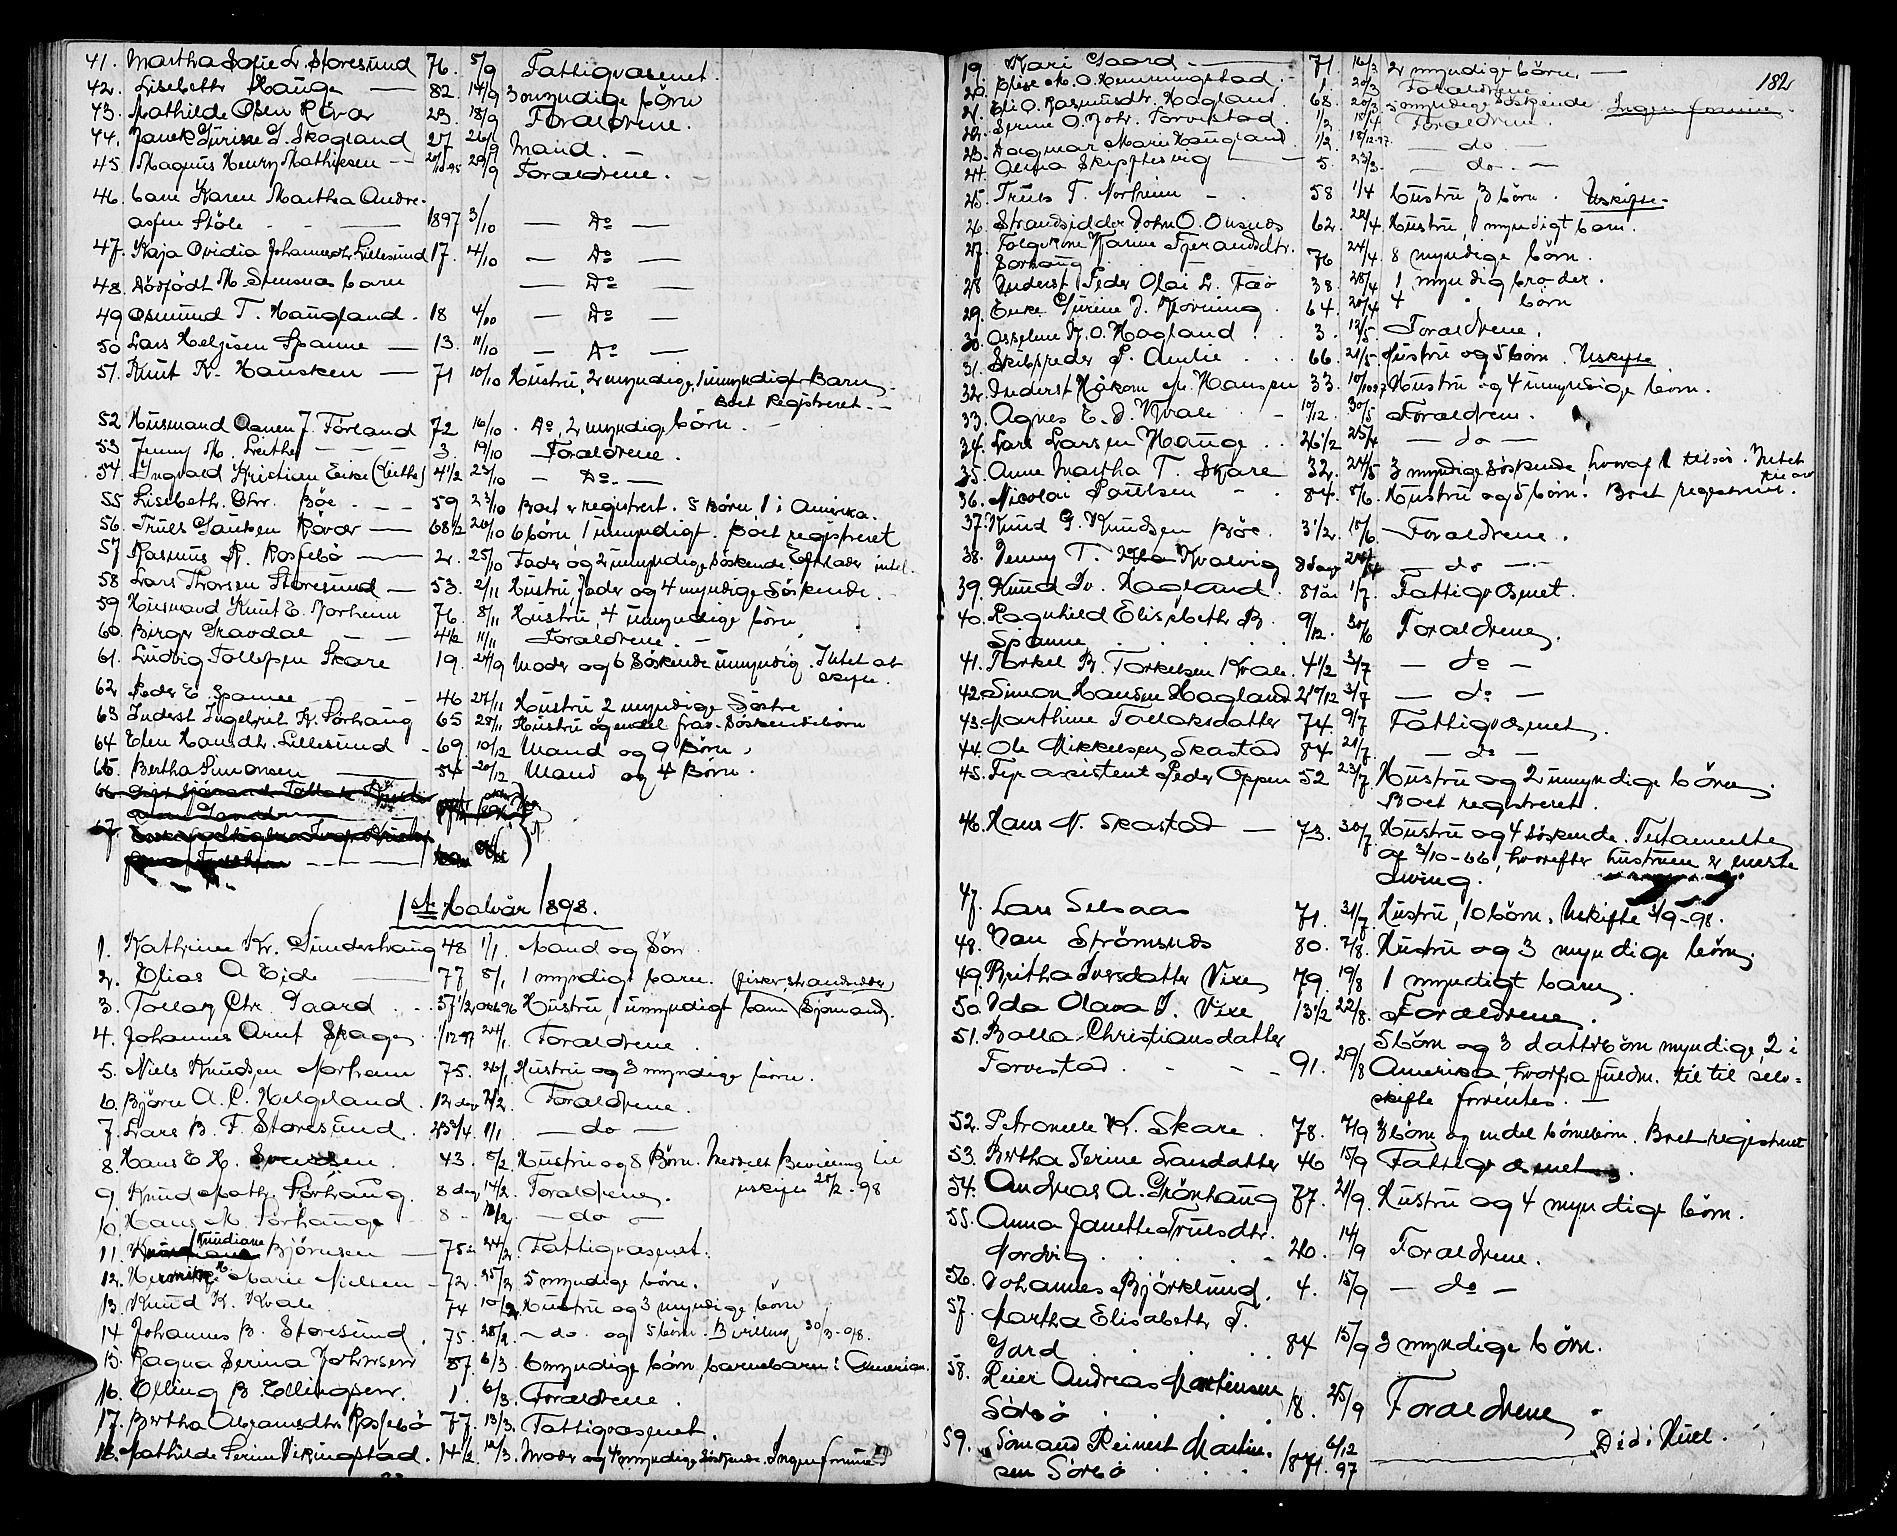 41. Martha Sofie L. Storesund 76. 5/9 Fattigvæsenet.
42. Lisebeth Hauge — 82 14/9 3 myndige börn
43. Mathilde Olsen Rövær 23. 18/9 Foraldrene.
44. Janek Gurine G. Skogland 27 26/9 Mand. —
45 Magnus Henry Mathiesen — 29/9 Foraldrene. —
46. barn Karen Martha Andre-
asen Stöle 1897 3/10 — Do —
47. Kaja Ovidia Johannesdtr Lillesund 17. 4/10 — Do —
48. Dödfödt M. Stensnæs barn — Do —
49 Osmund T. Haugland. 18 4/10 — Do —
50 Lars Helgesen Spanne — 13. 11/10 — Do —
51. Knut K. Hausken — 71 10/10 Hustru, 2 myndige, 1 umyndigt Barn.
Boet Registreret. —
52 Husmand Aanen J. Förland 72 16/10 . Do, 2 myndige börn. —
53 Jenny M. Leithe — 3. 19/10 Foraldrene.
54. Ingvald Kristian Erke (Leithe) 4 1/2 23/10 — Do. —
55 Lisebeth Chr. Böe. — 59 23/10 Boet er registrert. 5 Börn 1 i Amerika.
56. Truls Gautsen Rövær — 68 1/2 26/10 6 börn, 1 umyndigt. Boet registreret
57 Rasmus R. Rossebö — 2. 25/10 Fader og 2 umyndige Söskende. Efterlader intet.
58 Lars Thorsen Storesund — 53. 2/11 Hustru, fader og 4 myndige Söskende.
59 Husmand Knut E. Norheim 76. 8/11 Hustru, 4 umyndige börn,
60. Birger Gravdal — 4 1/2 11/11 Foraldrene. —
61. Ludvig Tollefsen Skare 19. 24/9 Moder og 6 Söskende umyndig. Intet at
skifte.
62 Peder E. Spanne — 46 27/11 Hustru 2 myndige Söstre
63 Inderst Ingebrigt K. Sörhaug 65 28/11 Hustru og endel fras. Söskendebörn
64 Elen Hansdtr. Lillesund - 69. 10/12 Mand og 9 Börn,
65. Bertha Simonsen — 54 20/12 Mand og 4 Börn.
66
67
1ste Halvår 1898.
1. Kathrine Kr. Sundershaug 48 1/1. Mand og Sön
2. Elias A Eide — 77 5/1 1 myndigt barn. (fisker, strandsidder
3. Tollag Chr. Gaard . . 57 1/2 Hustru, 1 umyndigt barn (Sjömand)
4. Johannes Arnt Skage 1/12 97 24/1. Foraldrene.
5. Niels Knudsen Norheim 75. 26/1 Hustru og 3 myndige börn.
6. Björn A. C. Helgeland. 12 dag 2/2. Foraldrene.
7. Lars B. F. Storesund. 23 3/4 1/1. — do —
8. Hans E H. Svendsen. 43. 5/2 Hustru og 8 Börn. Meddelt Bevilling til
uskifte 25/2-98
9. Knud Math. Sörhaug. 8 dag 14/2. Foraldrene.
10. Hans M. Sörhauge 8 - 18/2 — do —
11. Knudiane Björnsen — 75 24/2 Fattigvæsenet.
12. Marie Nielsen — 72. 25/2 5 myndige börn.
13. Knud K. Kvale 74 10/2 Hustru og 3 myndige börn
14 Johannes B. Storesund. 75. 28/2 — do. og 5 börn. Bevilling 30/3-98.
15. Ragna Serina Johnsen 57. 6/3. 6 myndige börn, barnebarn i Amerika.
16. Elling B. Ellingsen. 1. 6/3. Foraldrene.
17. Bertha Abramsdtr. Rossebö 77. 13/3. Fattigvæsenet.
18. Mathilde Serine Vikingstad. 14 1/2 12/3. Moder og 4 myndige Söskende. Ingen formue
182
19. Kari Gaard — 71. 16/3 2 myndige börn, —
20. Elise M. O. Hemmingstad. 1. 20/3 Foraldrene.
21. Eli O. Rasmusdtr. Hagland 68. 20/3 5 myndige Söskende. Ingen formue
22. Serine O. Joh. Törvestad. 1/2 15/4 Foraldrene.
23. Dagmar Marie Haugland 1/2. 18/12.97. — do —
24. Anna Skiftesvig — 5. 23/3. — do. —
25. Truls T. Norheim - 58 1/4 Hustru 3 börn. Uskifte.
26 Strandsidder John O. Osnæs 62. 22/4 Hustru, 1 myndigt barn.
27. Folgekone Hanne Tjerandsdtr.
Sörhaug 76 24/4 8 myndige börn.
28 Inderst Peder Olai L. Feö 38. 28/4 1 myndig broder.
29. Enke Gurine J. Hovring 64. 20/4 4 " börn
30. Asseline K. O. Hagland . . 3. 12/5. Foraldrene.
31. Skibsreder P. Amlie. . . 66. 21/5 Hustru og 5 börn. Uskifte
32. Inderst Håkon M. Hansen 33. 10/10 97 Hustru og 4 umyndige börn.
33. Agnes E. J. Kvale . - 10/12. 30/5 Foraldrene.
34. Lars Larsen Hauge . . 26 1/2 25/4 — do —
35. Anne Martha T. Skare 32. 24/5 3 myndige Söskende, hvoraf 1 tilsjös. Intet
til arv
36. Nicolai Poulsen - . 84. 5/6. Hustru og 5 börn. Boet registreret.
37. Knud G. Knudsen Böe. 3 1/2. 10/6. Foraldrene.
38. Jenny T. Kvalvig 8 dage — do —
39. Knud Iv. Hagland. 87 år 1/7. Fattigvæsnet.
40. Ragnhild Elisabeth B.
Spanne . . . 9/12. 30/6 Foraldrene.
41. Torkel B. Torkelsen Kvale. 4 1/2 3/7 — do —
42. Simon Hansen Hagland 2 10/12 3/7 — do —
43. Marthine Tollaksdatter 74. 9/7 Fattigvæsnet.
44. Ole Mikkelsen Skastad 84 21/7. — do —
45. Fyrassistent Peder Oppen 52 23/7 Hustru og 2 umyndige börn.
Boet registreret.
46. Hans N. Skastad — 73. 30/7 Hustru og 4 söskende. Testamente
af 3/10-66, hvorefter hustruen er eneste
arving.
47. Lars Selsaas 71. 31/7 Hustru, 10 börn. Uskifte 3/9-98.
48. Dan Strömsnæs 80. 7/8. Hustru og 3 myndige börn.
49. Britha Iversdatter Vixe 79. 19/8 1 myndigt barn.
50. Ida Olava I. Vixe 13 1/2 22/8. Foraldrene.
51. Bolla Christiansdatter
Torvestad. - - - 91. 29/8 5 börn og 3 datterbörn myndige, 2 i
Amerika, hvorfra fuldm. til til selv-
skifte forventes. —
52. Petronelle K. Skare . 78. 7/9 3 börn og endel börnebörn. Boet registreret
53. Bertha Serine Larsdatter 46 15/9 Fattigvæsnet.
54. Andreas A. Grönhaug 77. 21/9. Hustru og 4 myndige börn.
55. Anna Janette Trulsdtr.
Nordvig . . . . 20. 14/9 Foraldrene.
56. Johannes Björklund. 4. 15/9 — do —
57. Martha Elisabeth T.
Gard . . . . 84 15/9 3 myndige börn.
58. Reier Andreas Martinsen
Sörbö . . . . 18. 25/9 Foraldrene
59. Sömand Reinert Martin-
sen Sörbö . . . 1871. 6/12 97 — Död i Hull.